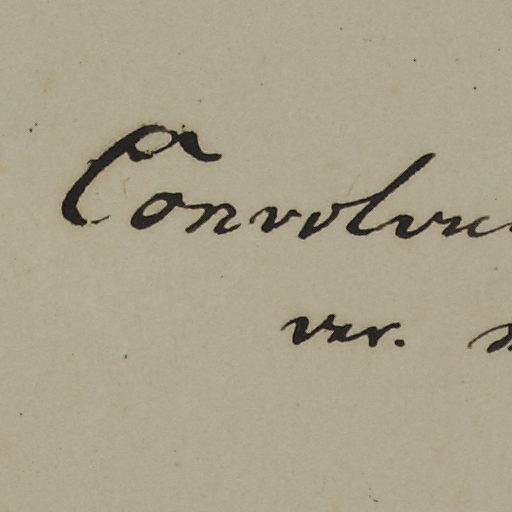 Convolvu
var.